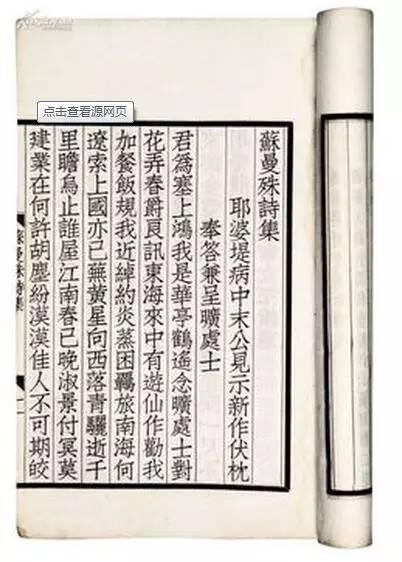 点击查看源网页
蘇曼殊詩集
耶婆堤病中末公見示新作伏枕
奉答兼呈曠處士
君爲塞上鴻我是華亭鶴遙念曠處士對
花弄春爵良訊東海來中有遊仙作勸我
加餐飯規我近綽約炎蒸困羈旅南海何
遼索上國亦已無黃星向西落青驪逝千
里瞻烏止誰屋江南春已晚淑景付冥莫
建業在何許胡塵紛漠漠佳人不可期皎
蘇曼殊詩集